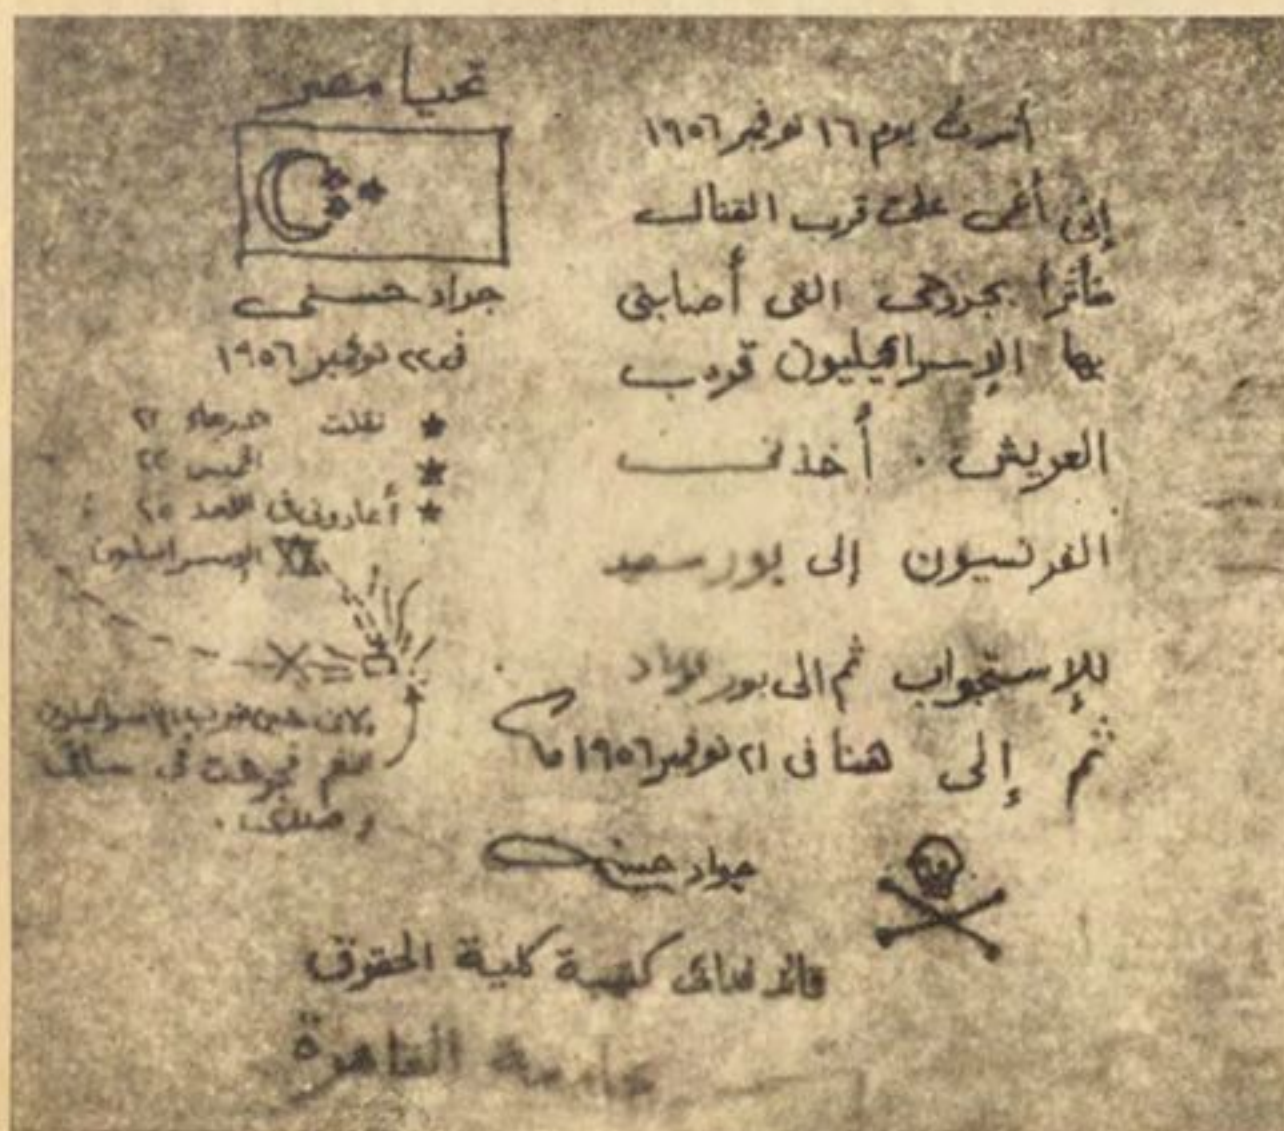 تحيا مصر
جواد حسنى
فى ٢٢ نوفمبر ١٩٥٦
★ نقلت ٢١
★ الخميس ٢٢
★ أعادونى ٢٥
الإسرائيلى
فى ساقى
أسرت يوم ١٦ نوفمبر ١٩٥٦
إثر أغمى على قرب القنال
متأثرا بجروحى التى أصابنى
بها الإسرائيليون قرب
العريش . أخذنى
الفرنسيون إلى بور سعيد
للإستجواب ثم الى بور فؤاد
ثم إلى هنا فى ٢١ نوفمبر ١٩٥٦
جواد حسنى
قائد فدائى كتيبة كلية الحقوق
جامعة القاهرة